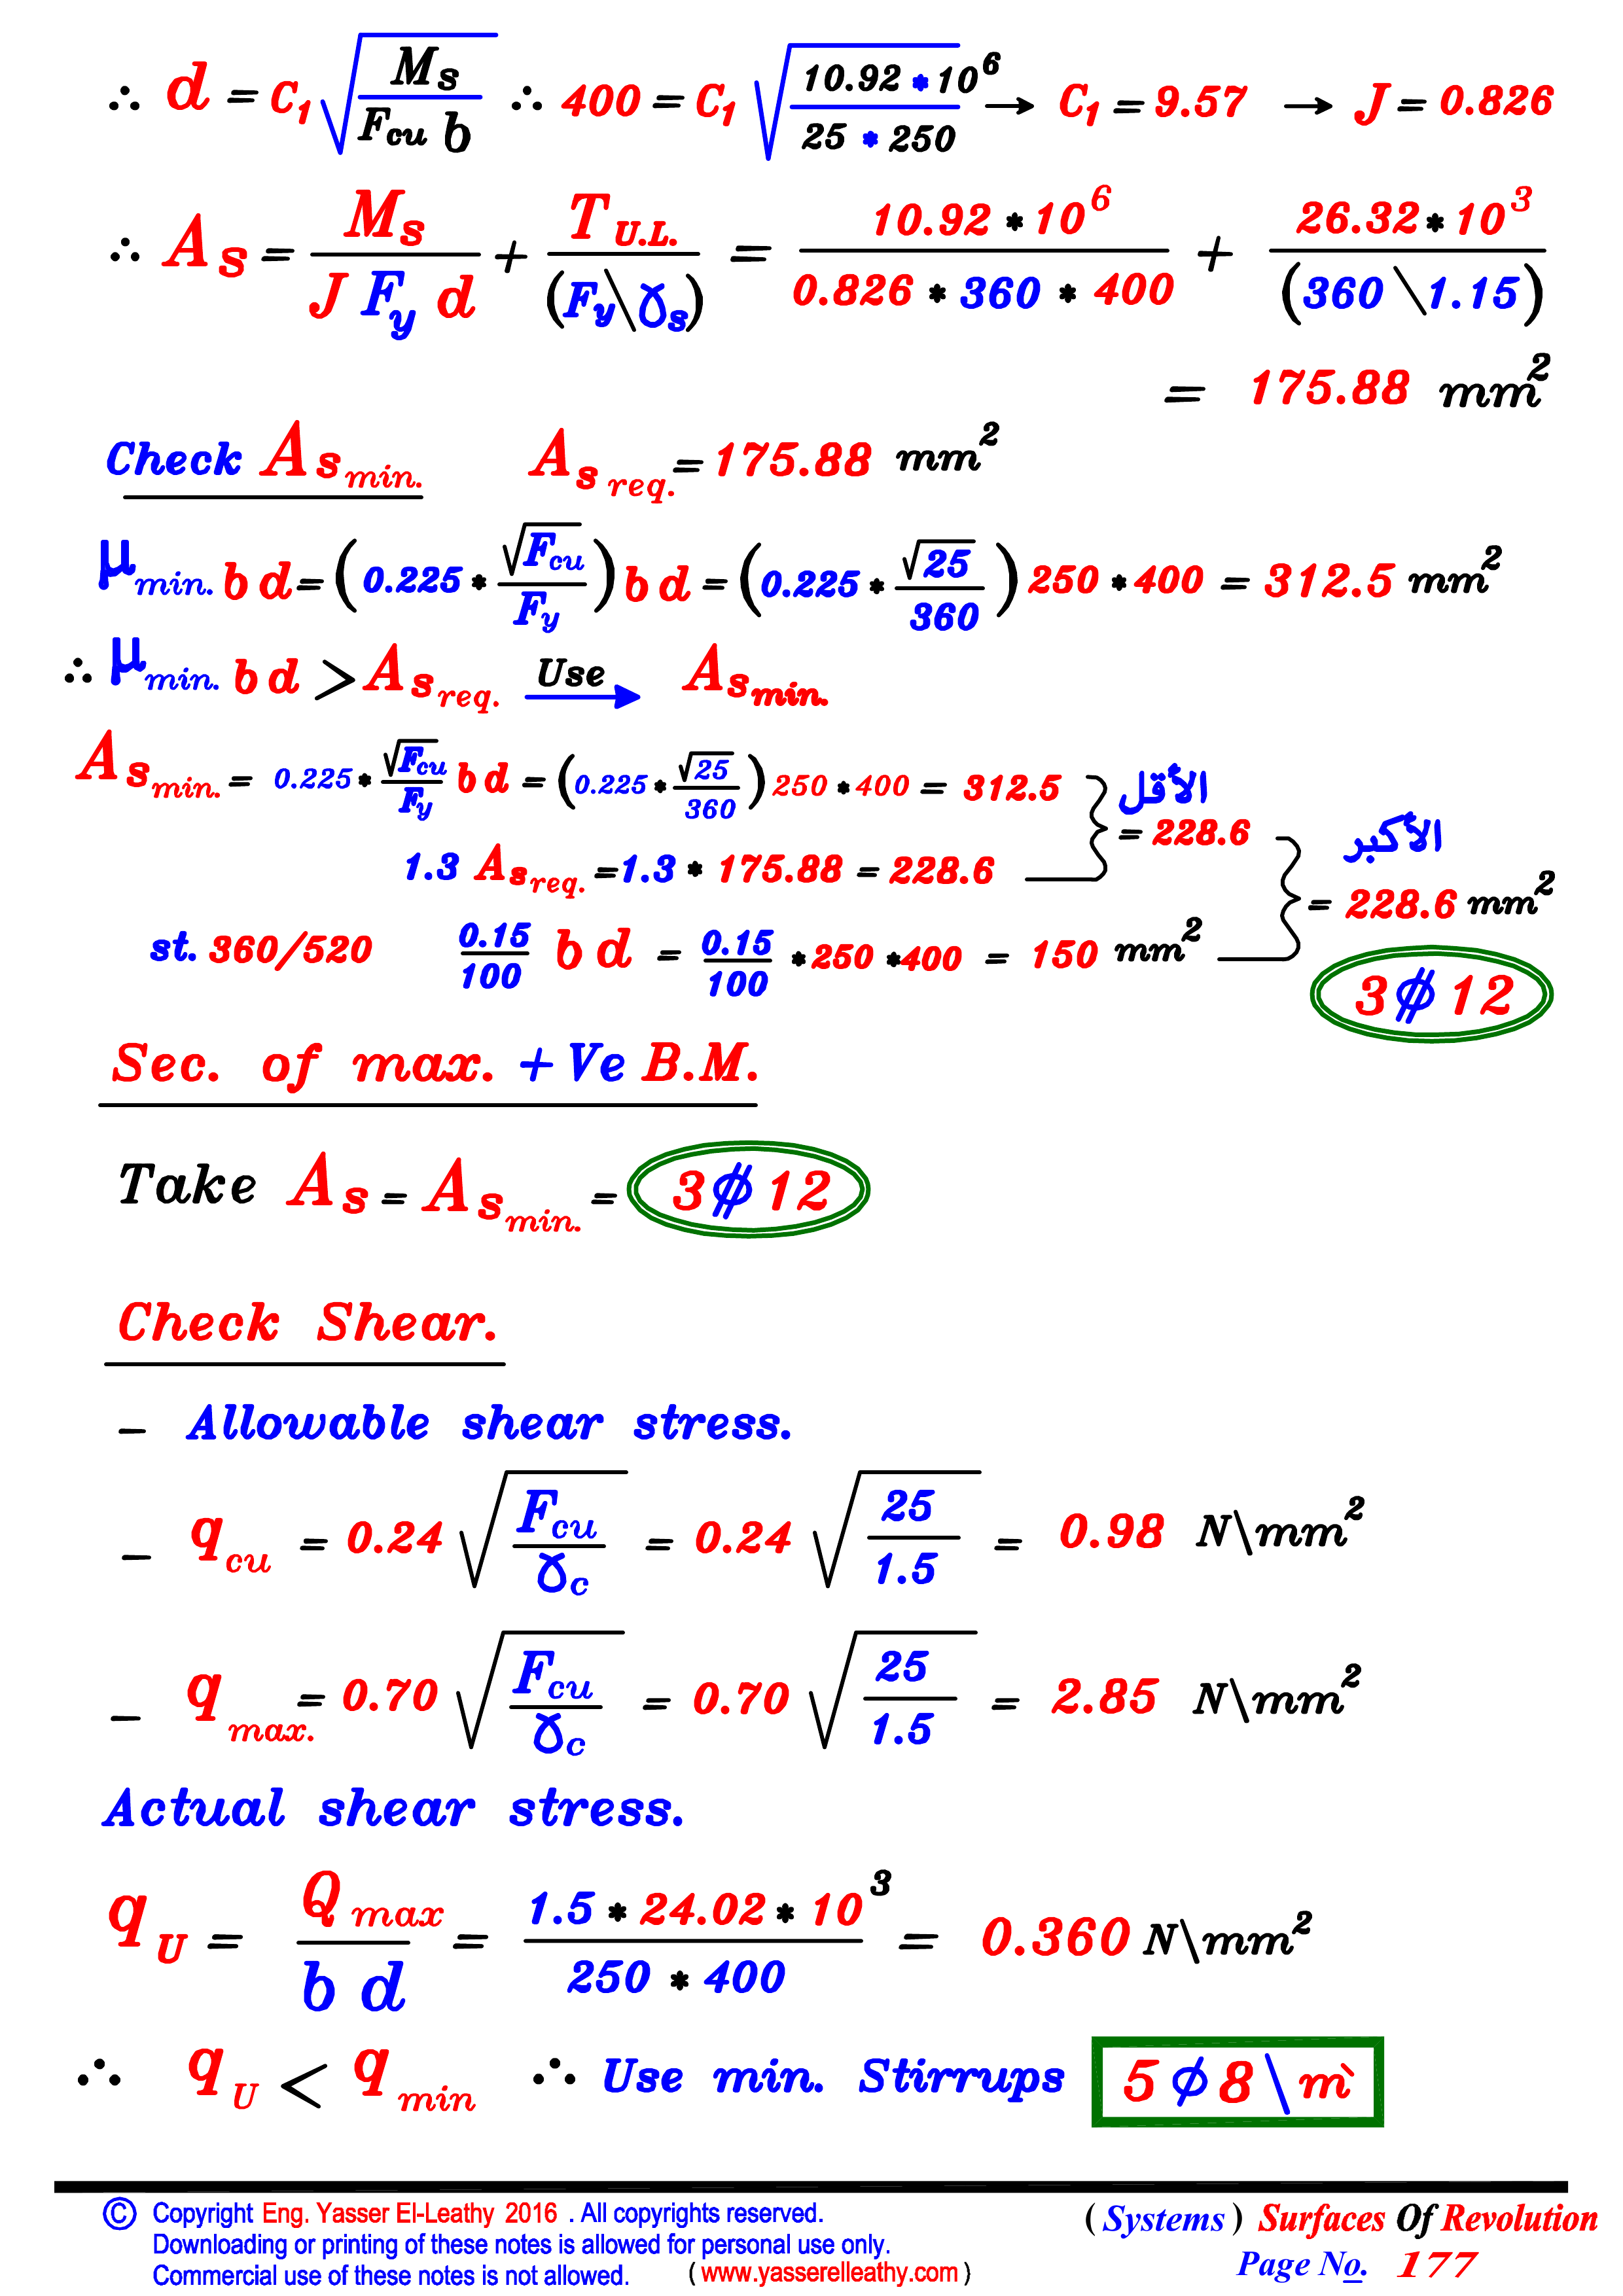 ∴ d = C₁ √(Ms / Fcu b) ∴ 400 = C₁ √(10.92 * 10⁶ / 25 * 250) → C₁ = 9.57 → J = 0.826
∴ As = Ms / (J Fy d) + T U.L. / (Fy\γs) = 10.92 * 10⁶ / (0.826 * 360 * 400) + 26.32 * 10³ / (360\1.15)
= 175.88 mm²
Check As min. As req. = 175.88 mm²
μ min. b d = (0.225 * √Fcu / Fy) b d = (0.225 * √25 / 360) 250 * 400 = 312.5 mm²
∴ μ min. b d > As req. Use → As min.
As min. = 0.225 * √Fcu / Fy b d = (0.225 * √25 / 360) 250 * 400 = 312.5 الأقل
= 228.6 الأكبر
1.3 As req. = 1.3 * 175.88 = 228.6
= 228.6 mm²
st. 360/520 0.15/100 b d = 0.15/100 * 250 * 400 = 150 mm²
3 ⌀ 12
Sec. of max. +Ve B.M.
Take As = As min. = 3 ⌀ 12
Check Shear.
– Allowable shear stress.
– q cu = 0.24 √(Fcu / γc) = 0.24 √(25 / 1.5) = 0.98 N\mm²
– q max. = 0.70 √(Fcu / γc) = 0.70 √(25 / 1.5) = 2.85 N\mm²
Actual shear stress.
q U = Q max / b d = 1.5 * 24.02 * 10³ / 250 * 400 = 0.360 N\mm²
∴ q U < q min ∴ Use min. Stirrups 5 ϕ 8 \ m`
© Copyright Eng. Yasser El-Leathy 2016 . All copyrights reserved.
Downloading or printing of these notes is allowed for personal use only.
Commercial use of these notes is not allowed. ( www.yasserelleathy.com )
( Systems ) Surfaces Of Revolution
Page No. 177